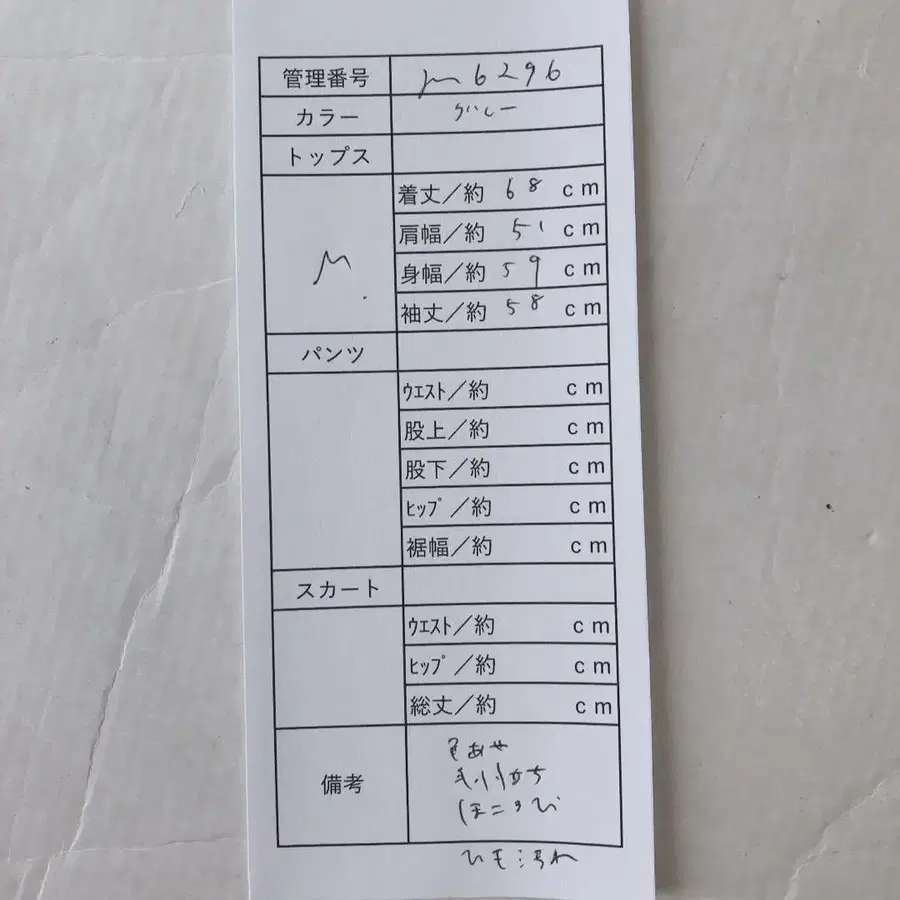 管理番号 m6296
カラー グレー
トップス
M
着丈／約 68 cm
肩幅／約 51 cm
身幅／約 59 cm
袖丈／約 58 cm
パンツ
ｳｴｽﾄ／約 cm
股上／約 cm
股下／約 cm
ﾋｯﾌﾟ／約 cm
裾幅／約 cm
スカート
ｳｴｽﾄ／約 cm
ﾋｯﾌﾟ／約 cm
総丈／約 cm
備考
色あせ
毛羽立ち
ほころび
ヒモ汚れ